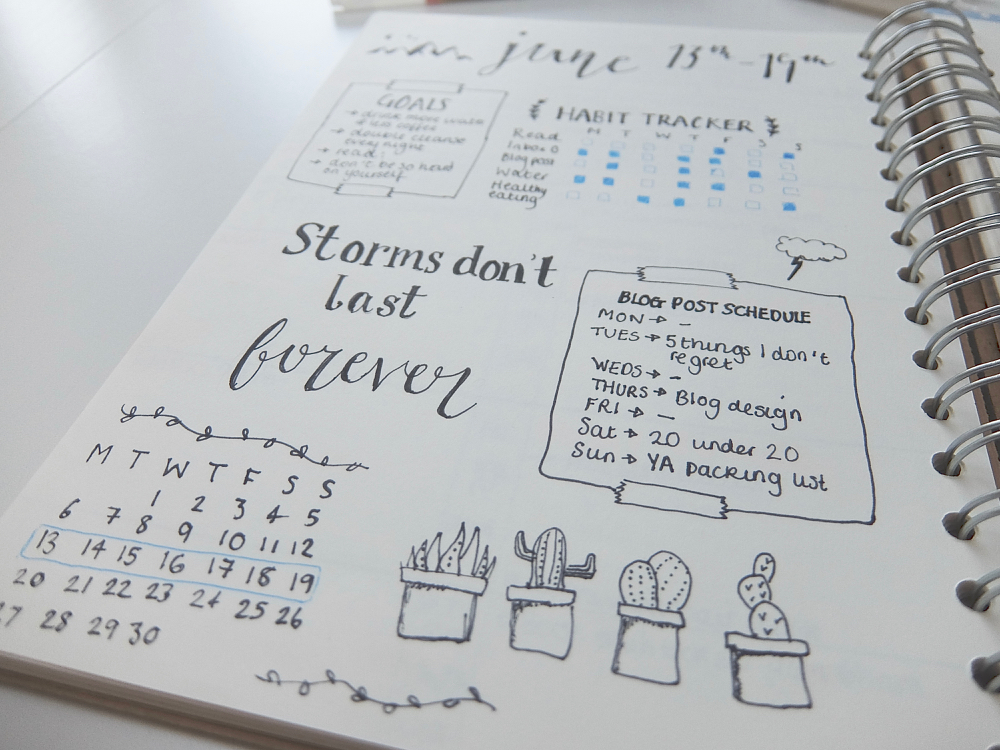 june 13th-19th
GOALS
→ drink more water
& less coffee
→ double cleanse
every night
→ read!
→ don't be so hard
on yourself
HABIT TRACKER
M T W T F S S
Read
Inbox 0
Blog post
Water
Healthy
eating
Storms don't
last
forever
BLOG POST SCHEDULE
MON → -
TUES → 5 things I don't
regret
WEDS → -
THURS → Blog design
FRI → -
Sat → 20 under 20
Sun → YA packing list
M T W T F S S
1 2 3 4 5
6 7 8 9 10 11 12
13 14 15 16 17 18 19
20 21 22 23 24 25 26
27 28 29 30